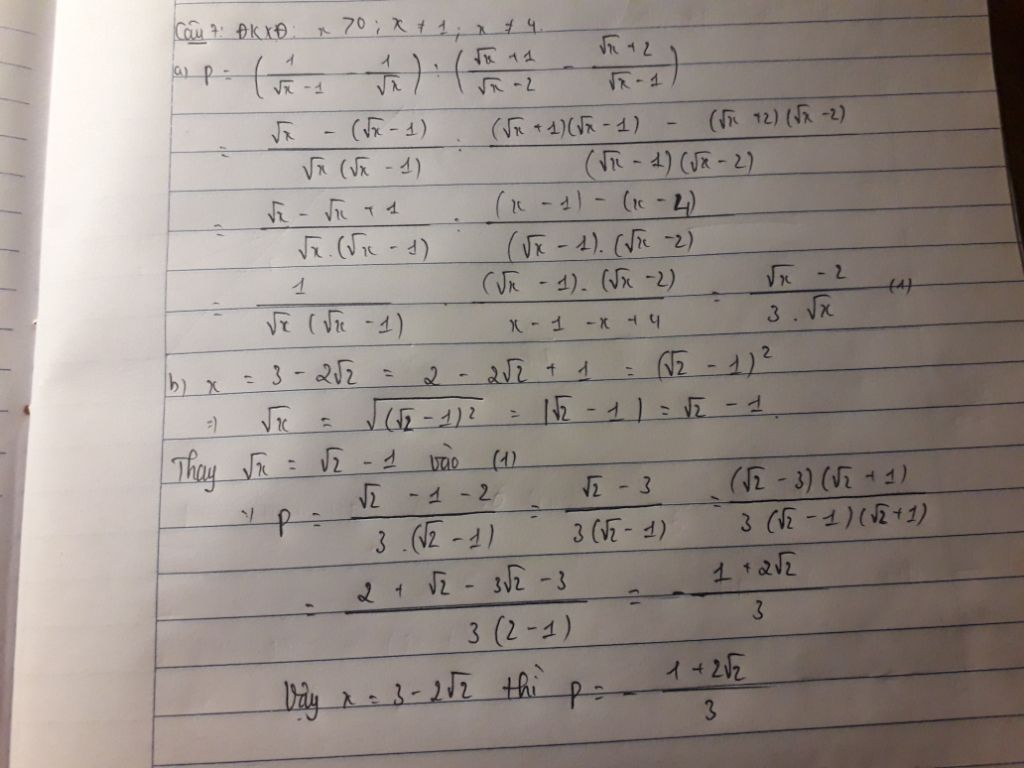 Câu 7: ĐKXĐ: x > 0; x ≠ 1; x ≠ 4.
a) P = (1/(√x - 1) - 1/√x) : ((√x + 1)/(√x - 2) - (√x + 2)/(√x - 1))
= (√x - (√x - 1))/(√x (√x - 1)) : ((√x + 1)(√x - 1) - (√x + 2)(√x - 2))/((√x - 1)(√x - 2))
= (√x - √x + 1)/(√x.(√x - 1)) : ((x - 1) - (x - 4))/((√x - 1).(√x - 2))
= 1/(√x (√x - 1)) . ((√x - 1).(√x - 2))/(x - 1 - x + 4) = (√x - 2)/(3.√x) (1)
b) x = 3 - 2√2 = 2 - 2√2 + 1 = (√2 - 1)²
=) √x = √((√2 - 1)²) = |√2 - 1| = √2 - 1.
Thay √x = √2 - 1 vào (1)
=) P = (√2 - 1 - 2)/(3.(√2 - 1)) = (√2 - 3)/(3(√2 - 1)) = ((√2 - 3)(√2 + 1))/(3(√2 - 1)(√2 + 1))
= (2 + √2 - 3√2 - 3)/(3(2 - 1)) = - (1 + 2√2)/3
Vậy x = 3 - 2√2 thì P = - (1 + 2√2)/3